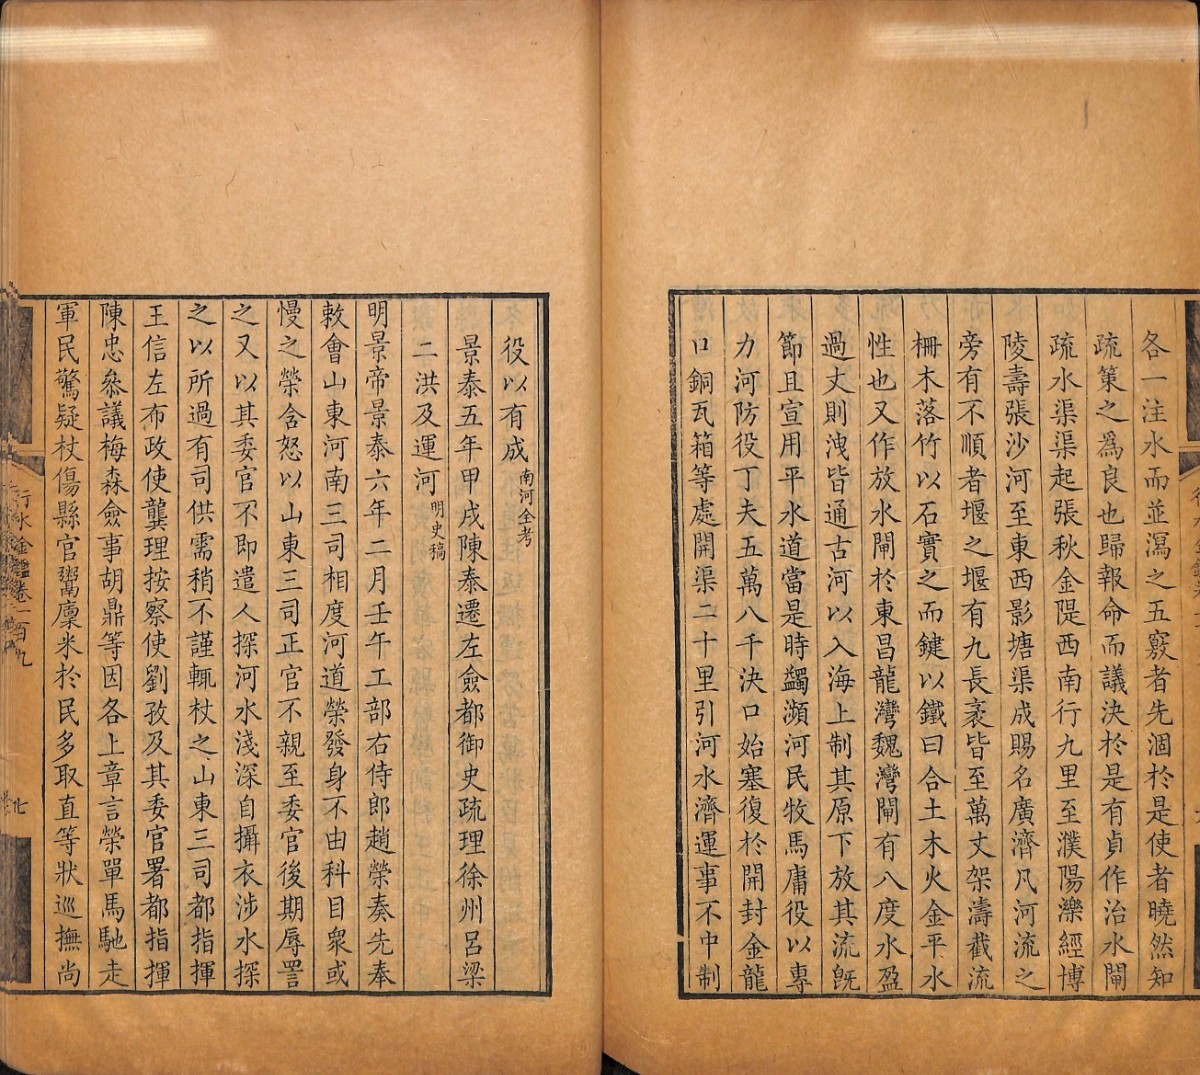 各一注水而並瀉之五竅者先涸於是使者曉然知
疏策之為良也歸報命而議決於是有貞作治水閘
疏水渠渠起張秋金隄西南行九里至濮陽濼經博
陵壽張沙河至東西影塘渠成賜名廣濟凡河流之
旁有不順者堰之堰有九長袤皆至萬丈架濤截流
柵木落竹以石實之而鍵以鐵曰合土木火金平水
性也又作放水閘於東昌龍灣魏灣閘有八度水盈
過丈則洩皆通古河以入海上制其原下放其流旣
節且宣用平水道當是時蠲瀕河民牧馬庸役以專
力河防役丁夫五萬八千決口始塞復於開封金龍
口銅瓦箱等處開渠二十里引河水濟運事不中制
役以有成南河全考
景泰五年甲戌陳泰遷左僉都御史疏理徐州呂梁
二洪及運河明史稿
明景帝景泰六年二月壬午工部右侍郎趙榮奏先奉
敕會山東河南三司相度河道榮發身不由科目衆或
慢之榮含怒以山東三司正官不親至委官後期辱詈
之又以其委官不即遣人探河水淺深自攝衣涉水探
之以所過有司供需稍不謹輒杖之山東三司都指揮
王信左布政使龔理按察使劉孜及其委官署都指揮
陳忠叅議梅森僉事胡鼎等因各上章言榮單馬馳走
軍民驚疑杖傷縣官鬻廩米於民多取直等狀巡撫尚
行水金鑑卷一百九